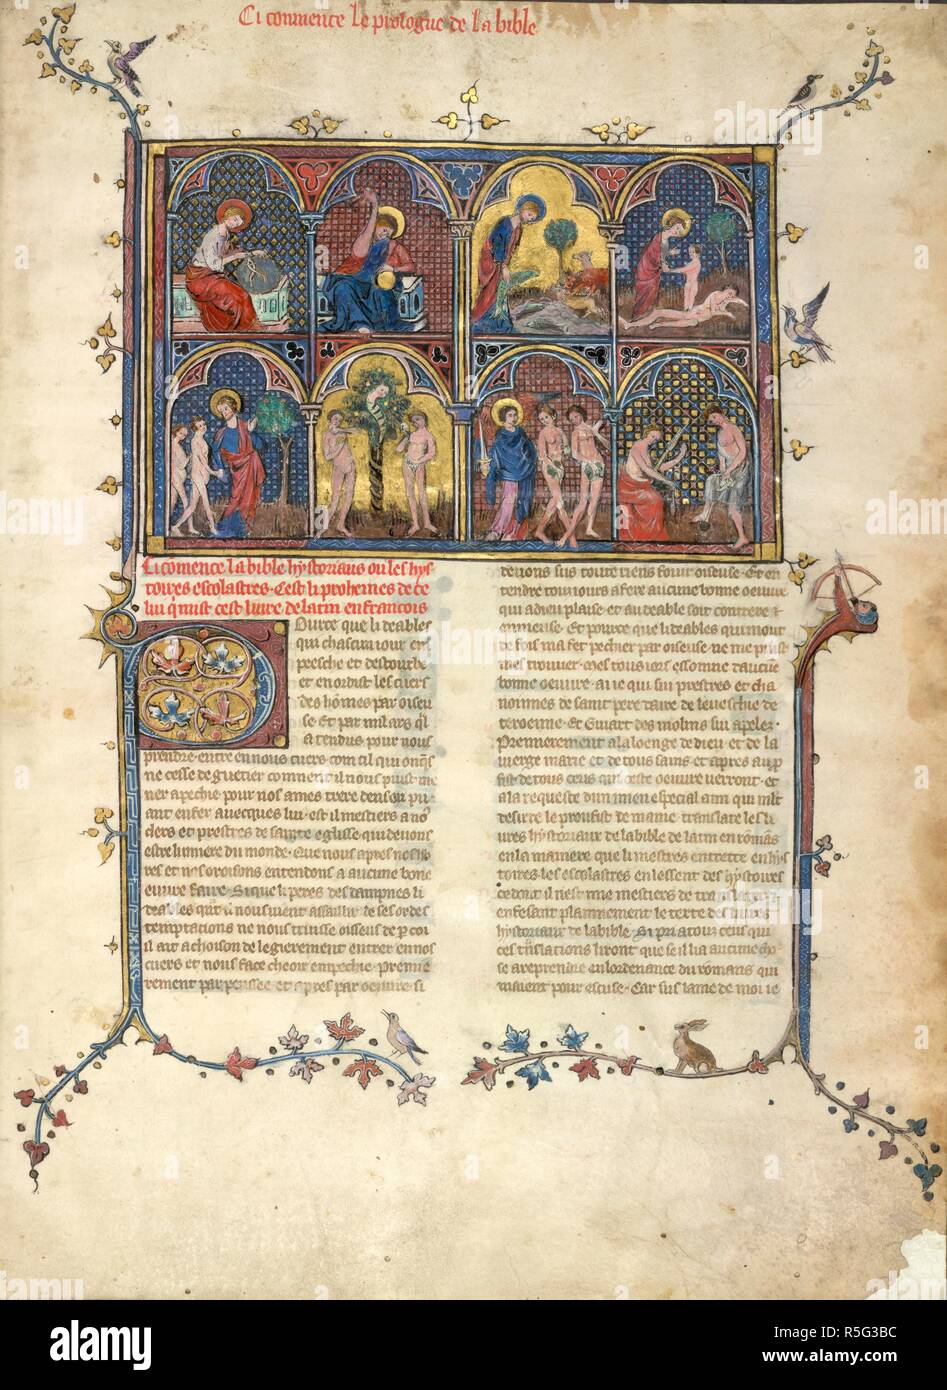 Ci commence le prologue de la bible
Ci comence la bible hystoriaus ou les hys
toires escolastres. Cest li prohemes de ce
lui q mist cest liure de latin en francois
Pource que li deables
qui chascun iour em
pesche et destourbe
et enordist les cuers
des homes par oiseu
se et par mil lars ql
a tendus pour nous
prendre. entre en nous cuers com cil qui onqs
ne cesse de guetier comment il nous puist me
ner a pechie pour nos ames trere
ant enfer auecques lui. est il mestiers a no
et prestres de sainte eglise qui deuons
estre lumiere du monde. Que nous apres nes
res et nos oroisons entendons a aucune bone
euure faire. Si que li peres des dampnes li
deables qut nous vient assaillir de ses ordes
temptations ne nous truisse oiseus de p coi
il ait achoison de legierement entrer en nos
cuers et nous face cheoir em pechie. premie
rement par pensee et apres par oeuure. si
deuons sus toute riens fouir oiseuse. Et en
tendre touiours a fere aucune bonne oeuure
qui a dieu plaise et au deable soit contrere et
Et pource que li deables qui mout
de fois ma fet pechier par oiseuse. ne me puist
mes trouuer. Mes tous iers essomne daucune
bonne oeuure. ai ie qui sui prestres et cha
noinnes de saint pere daire de leueschie de
teroenne. Et Guiart des molins sui apelez.
Premierement a la loenge de dieu et de la
uierge marie et de tous sains et apres au p
fist de tous ceus qui ceste oeuure verront. et
a la requeste dun mien especial ami qui mlt
desirre le proufist de mame. translate les li
ures hystoriaux de la bible de latin en romans
en la maniere que li mestres en trette en hys
toires les escolastres en lessent des hystoires
ce dont il nest mie mestiers de translater
en fesant plainnement le texte des liures
hystoriaux de la bible. Si pri a tous ceus qui
ces translations liront que se il i a aucune cho
se a reprendre en lordenance du romans qui
maient pour escuse. Car sus lame de moi ie
alamy
alamy stock photo
R5G3BC
www.alamy.com